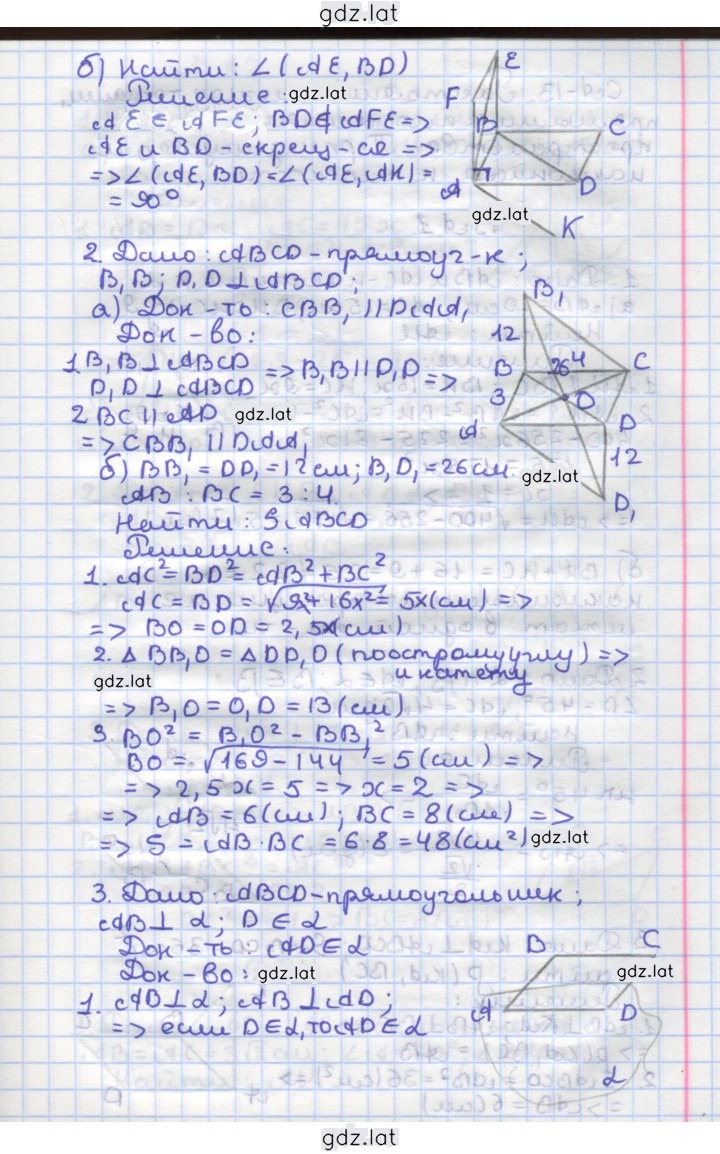 gdz.lat
б) Найти: ∠(AE, BD)
Решение: gdz.lat
AE ∈ AFE; BD ∉ AFE =>
AE и BD - скрещ-ся =>
=> ∠(AE, BD) = ∠(AE, AK) =
= 90°
E
F
B
C
A
D
gdz.lat
K
2. Дано: ABCD - прямоуг-к;
B, B; D, D ⊥ ABCD;
а) Док-ть: CBB₁ || DAA₁
Док-во:
1. B, B ⊥ ABCD => B, B || D, D =>
D, D ⊥ ABCD
2 BC || AD gdz.lat
=> CBB₁ || DAA₁
B₁
12
B
26
4
C
3
O
A
D
12
D₁
б) BB₁ = DD₁ = 12 см; B₁D₁ = 26 см.
gdz.lat
AB : BC = 3 : 4.
Найти: SABCD
Решение:
1. AC² = BD² = AB² + BC²
AC = BD = √9x² + 16x² = 5x (см) =>
=> BO = OD = 2,5x (см)
2. △ BB₁O = △ DD₁O (по острому углу) =>
и катету
gdz.lat
=> B₁O = O₁D = 13 (см)
3. BO² = B₁O² - BB₁²
BO = √169 - 144 = 5 (см) =>
=> 2,5x = 5 => x = 2 =>
=> AB = 6 (см); BC = 8 (см) =>
=> S = AB · BC = 6·8 = 48 (см²) gdz.lat
3. Дано: ABCD - прямоугольник;
AB ⊥ α; D ∈ α
Док-ть: AD ∈ α
Док-во: gdz.lat
1. AB ⊥ α; AB ⊥ AD;
=> если D ∈ α, то AD ∈ α
B
C
gdz.lat
A
D
α
gdz.lat